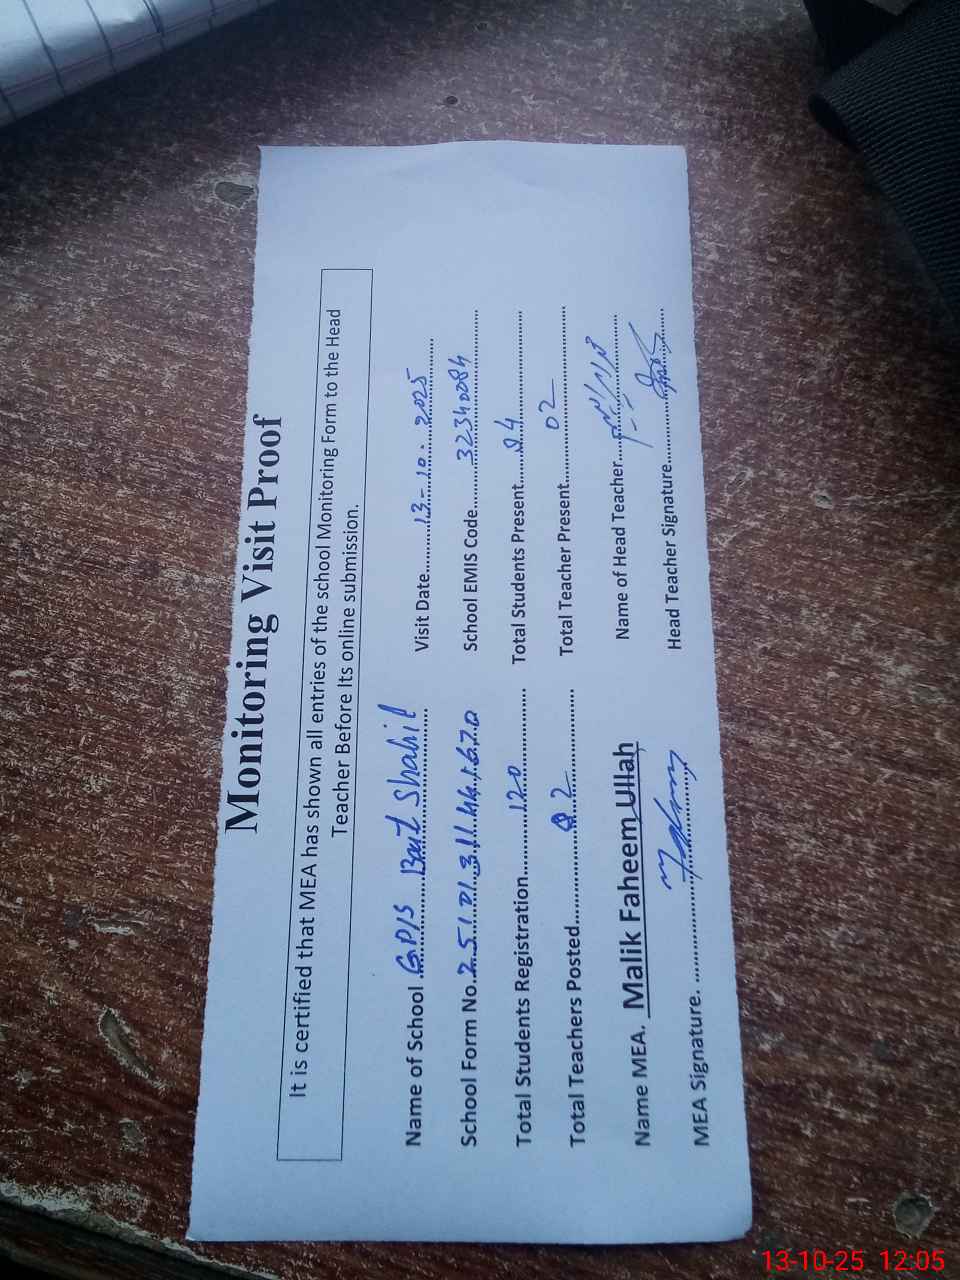 Monitoring Visit Proof
It is certified that MEA has shown all entries of the school Monitoring Form to the Head
Teacher Before Its online submission.
Name of School GP/S Bait Shahil Visit Date 13-10-2025
School Form No. School EMIS Code 32340084
Total Students Registration 120 Total Students Present 94
Total Teachers Posted 02 Total Teacher Present 02
Name MEA. Malik Faheem Ullah Name of Head Teacher
MEA Signature. Head Teacher Signature
13-10-25 12:05